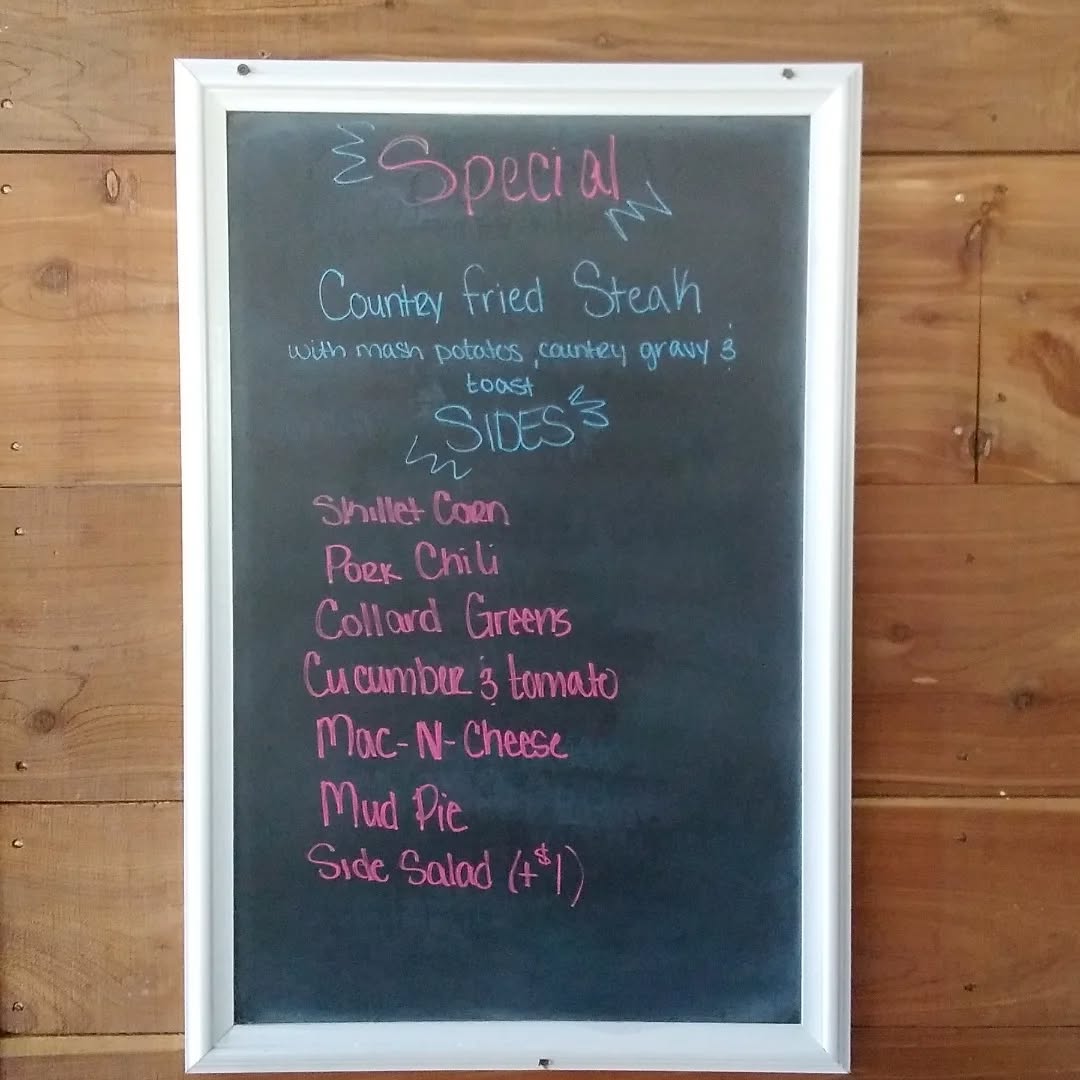 Special
Country fried Steak
with mash potatos, country gravy &
toast
SIDES
Skillet Corn
Pork Chili
Collard Greens
Cucumber & tomato
Mac-N-Cheese
Mud Pie
Side Salad (+$1)